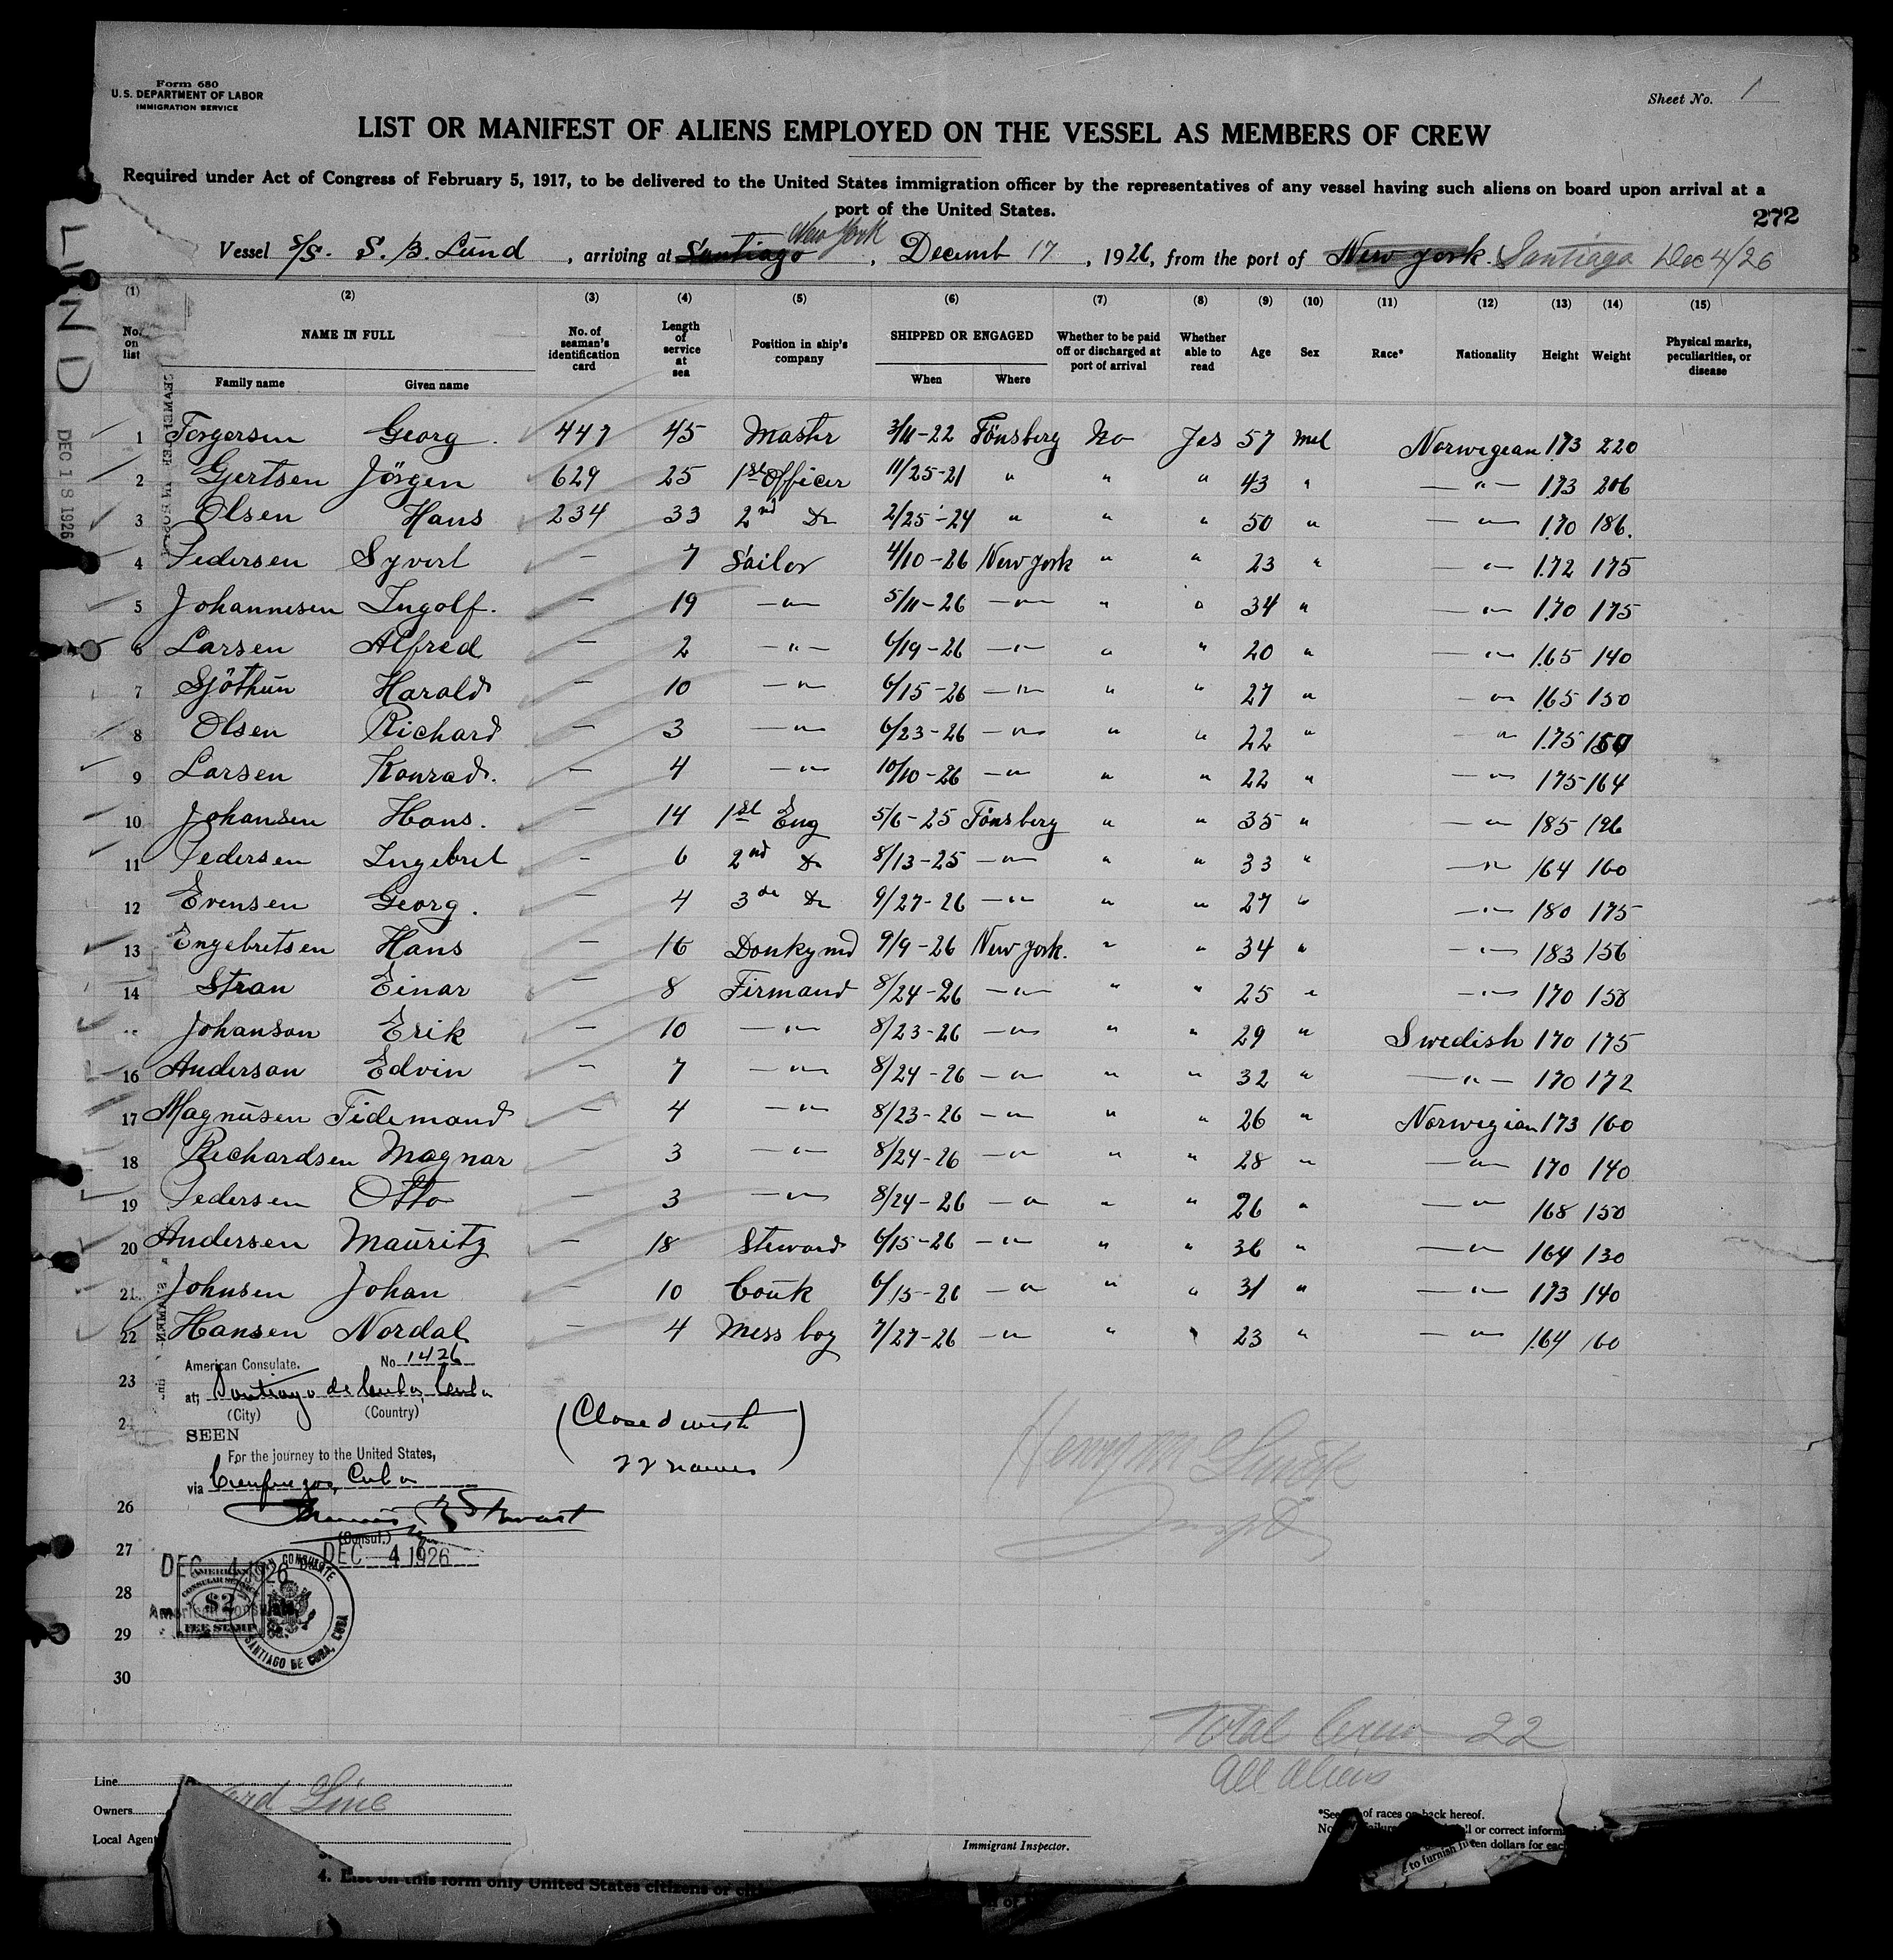 Form 680
U.S. DEPARTMENT OF LABOR
IMMIGRATION SERVICE
Sheet No. 1
LIST OR MANIFEST OF ALIENS EMPLOYED ON THE VESSEL AS MEMBERS OF CREW
Required under Act of Congress of February 5, 1917, to be delivered to the United States immigration officer by the representatives of any vessel having such aliens on board upon arrival at a
port of the United States.
272
Vessel S/S. S. B. Lund, arriving at Santiago New York, Decemb 17, 1926, from the port of New York. Santiago Dec 4/26
LUND
DEC 18 1926
(1) (2) (3) (4) (5) (6) (7) (8) (9) (10) (11) (12) (13) (14) (15)
No. on list NAME IN FULL No. of seaman's identification card Length of service at sea Position in ship's company SHIPPED OR ENGAGED Whether to be paid off or discharged at port of arrival Whether able to read Age Sex Race* Nationality Height Weight Physical marks, peculiarities, or disease
Family name Given name When Where
1 Torgersen Georg. 447 45 Mastr 3/11-22 Tönsberg No Jes 57 Mel Norwegean 1.73 220
2 Gjertsen Jörgen 629 25 1st Officer 11/25-21 " " " 43 " —"— 1.73 206
3 Olsen Hans 234 33 2nd Do 2/25-24 " " " 50 " —"— 1.70 186.
4 Pedersen Syvert — 7 Sailor 4/10-26 New York " " 23 " —"— 1.72 175
5 Johannesen Ingolf. — 19 —"— 5/11-26 —"— " " 34 " —"— 1.70 175
6 Larsen Alfred — 2 —"— 6/19-26 —"— " " 20 " —"— 1.65 140
7 Sjöthun Harald — 10 —"— 6/15-26 —"— " " 27 " —"— 165 150
8 Olsen Richard — 3 —"— 6/23-26 —"— " " 22 " " 1.75 150
9 Larsen Konrad. — 4 —"— 10/10-26 —"— " " 22 " —"— 175 164
10 Johansen Hans. — 14 1st Eng 5/6-25 Tönsberg " " 35 " —"— 185 196
11 Pedersen Ingebret — 6 2nd Do 8/13-25 —"— " " 33 " —"— 164 160
12 Evensen Georg. — 4 3de Do 9/27-26 —"— " " 27 " —"— 180 175
13 Engebretsen Hans — 16 Donkymd 9/9-26 New York. " " 34 " —"— 183 156
14 Stran Einar — 8 Firmand 8/24-26 —"— " " 25 " —"— 170 158
Johanson Erik — 10 —"— 8/23-26 —"— " " 29 " Swedish 170 175
16 Anderson Edvin — 7 —"— 8/24-26 —"— " " 32 " —"— 170 172
17 Magnusen Tidemand — 4 —"— 8/23-26 —"— " " 26 " Norwegian 173 160
18 Richardsen Magnar — 3 —"— 8/24-26 —"— " " 28 " —"— 170 140
19 Pedersen Otto — 3 —"— 8/24-26 —"— " " 26 " —"— 168 150
20 Andersen Mauritz — 18 Steward 6/15-26 —"— " " 36 " —"— 164 130
21 Johnsen Johan — 10 Couk 6/15-26 —"— " " 31 " —"— 173 140
22 Hansen Nordal — 4 Mess boy 7/27-26 —"— " " 23 " —"— 1.64 160
American Consulate. No 1426
23
at; Santiago de Cuba, Cuba
(City) (Country)
24
SEEN
(Closed with
22 names)
For the journey to the United States,
via Cienfuegos, Cuba
26
(Consul.)
27
DEC 4 1926
DEC 4 1926
28
AMERICAN CONSULAR SERVICE $2 FEE STAMP
American Consulate
AMERICAN CONSULATE SANTIAGO DE CUBA, CUBA
29
30
Total Crew — 22
All Aliens
Line
Owners
Local Agent
Line
Immigrant Inspector.
*See of races on back hereof.
ll or correct inform
to furnish
ten dollars for eac
4. List on this form only United States citizens or